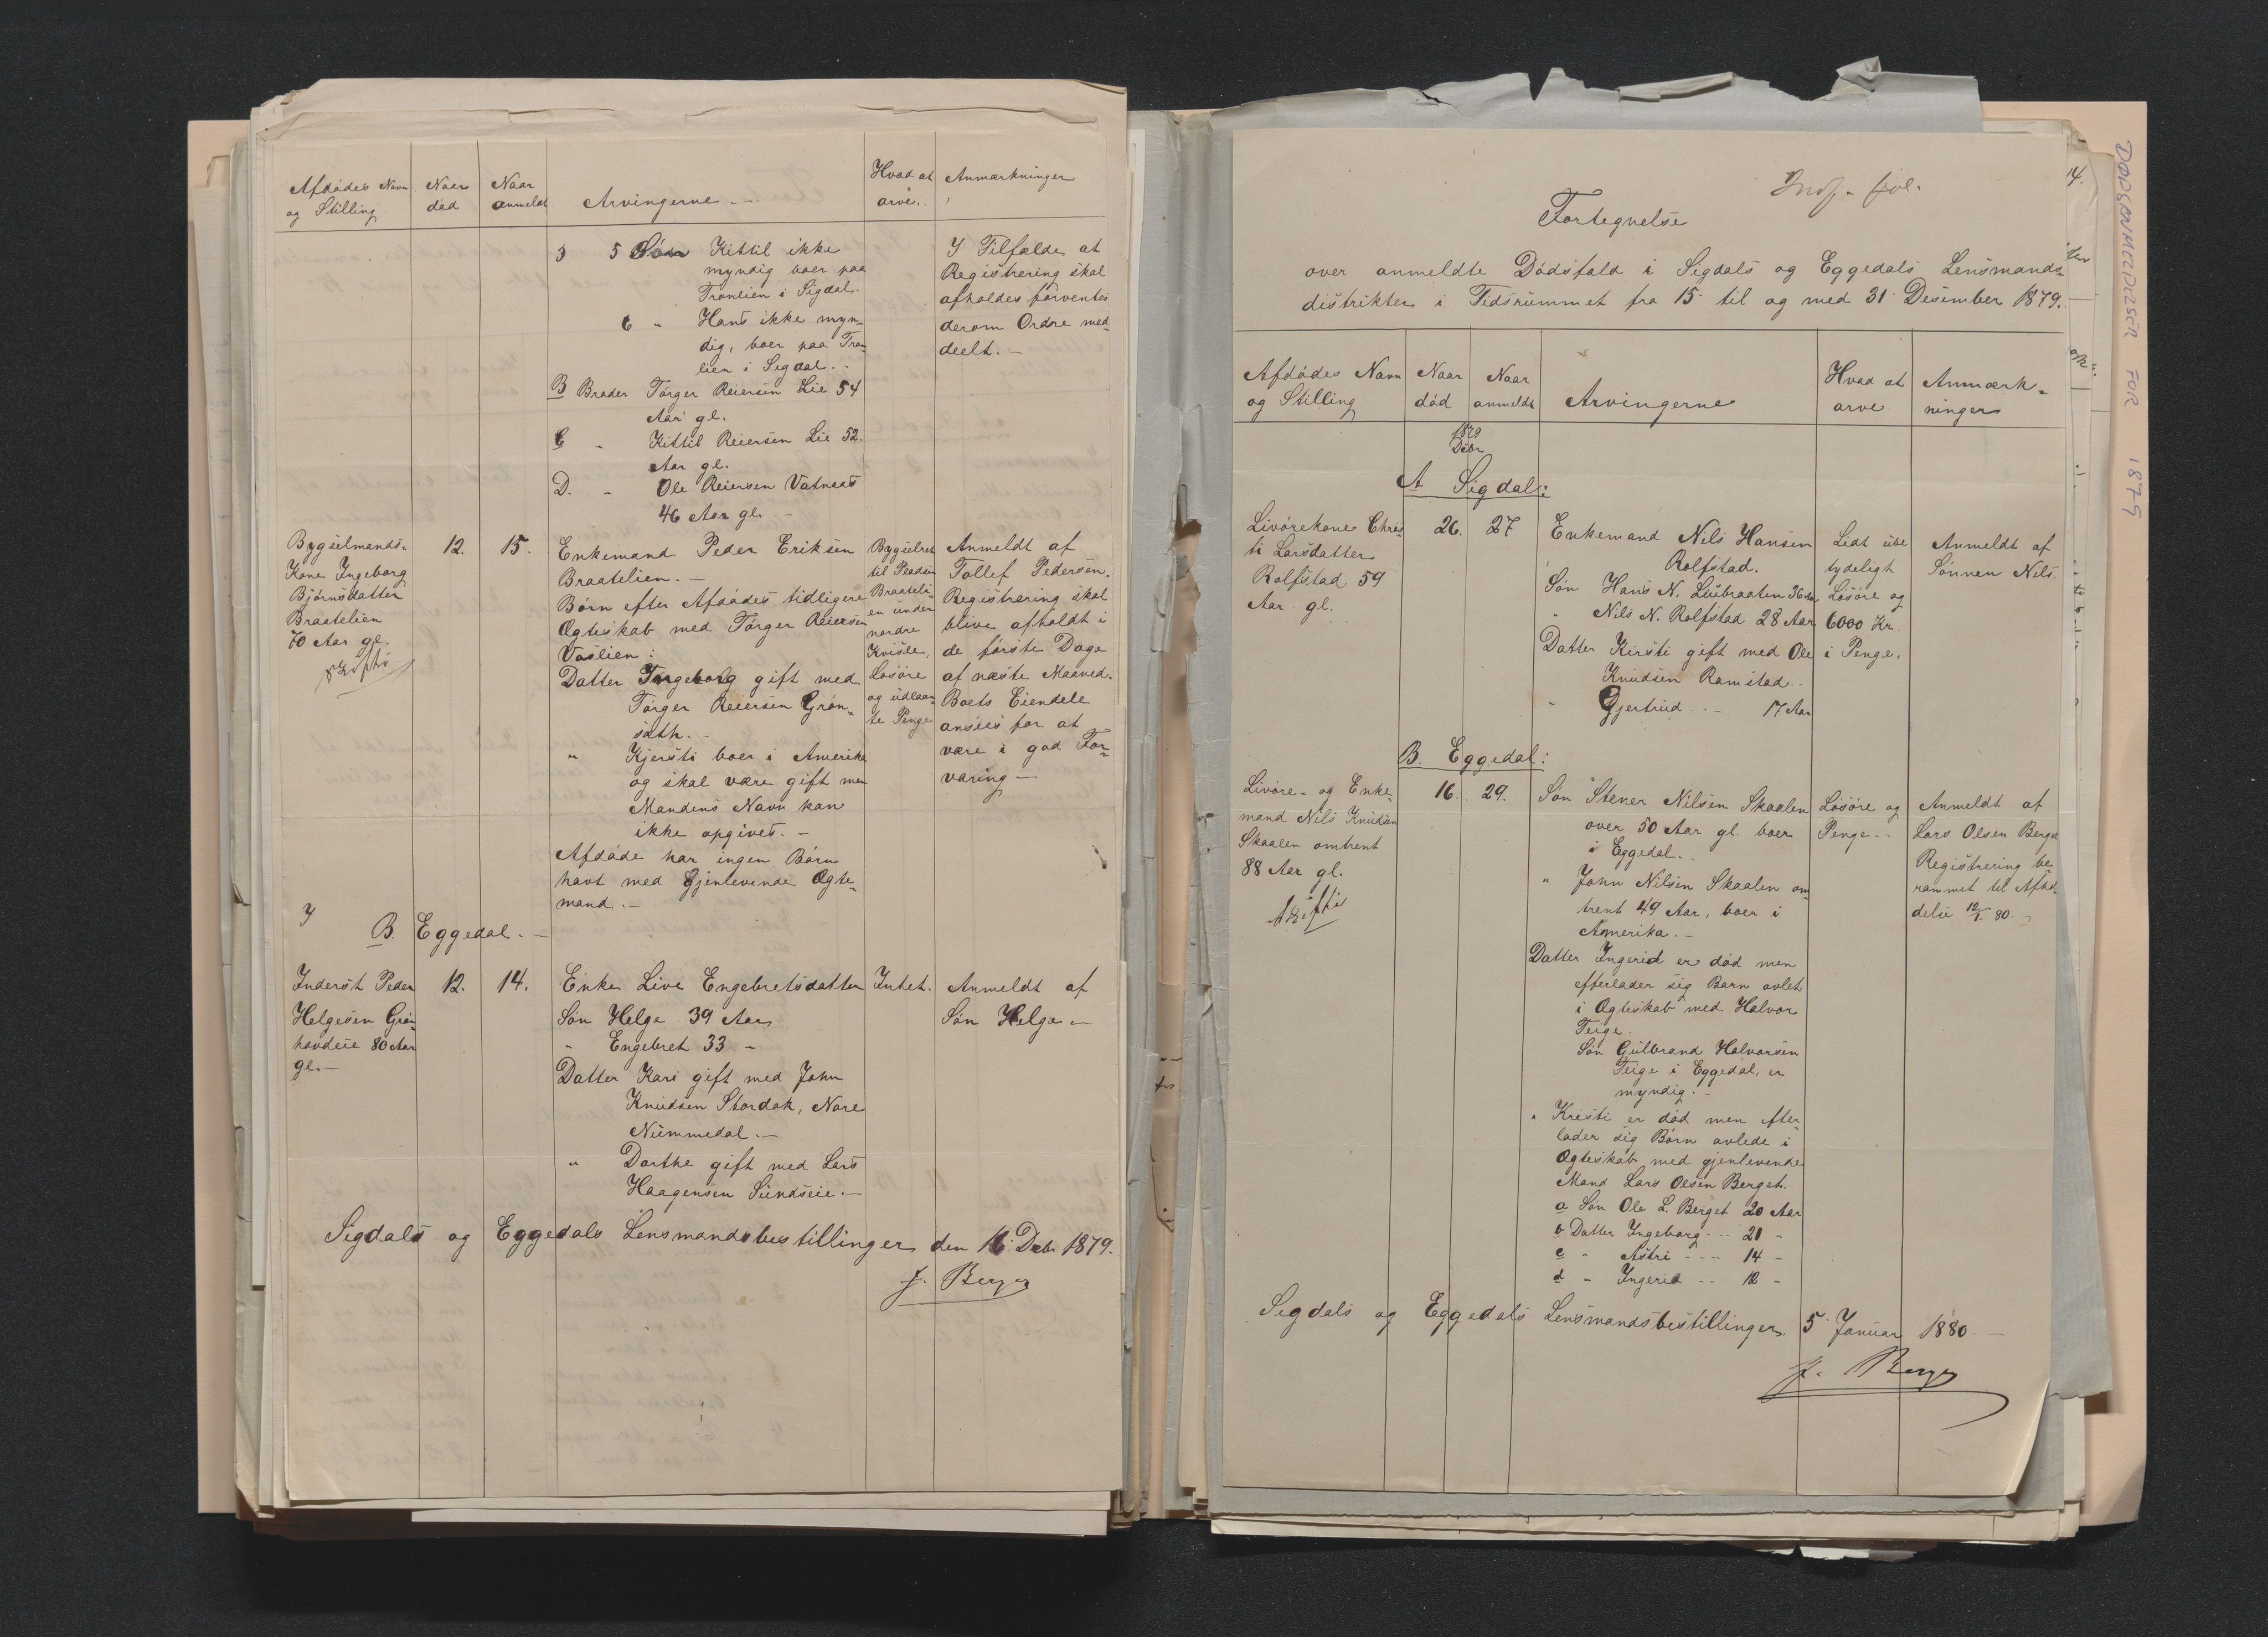 Afdødes Navn
og Stilling
Naar
død
Naar
anmeldt
Arvingerne
Hvad at
arve.
Anmærkninger
3 5 Søn Kittil ikke
myndig boer paa
Tronlien i Sigdal.
6 " Hans ikke myn-
dig, boer paa Tron-
lien i Sigdal.
B Broder Torger Reiersen Lie 54
Aar gl.
C " Kittil Reiersen Lie 52.
Aar gl.
D. " Ole Reiersen Vatnaas
46 Aar gl. -
I Tilfælde at
Registrering skal
afholdes forventes
derom Ordre med-
deelt. -
Bygselmands-
Kone Ingeborg
Bjørnsdatter
Braatelien
70 Aar gl.
skifte
12.
15.
Enkemand Peder Eriksen
Braatelien. -
Børn efter Afdødes tidligere
Ægteskab med Torger Reiersen
Vaslien:
Datter Ingeborg gift med
Torger Reiersen Grøn-
sæth. -
" Kjersti boer i Amerika
og skal være gift men
Mandens Navn kan
ikke opgives. -
Afdøde har ingen Børn
havt med Gjenlevende Ægte-
mand. -
Bygselret
til Pladsen
Braateli-
en under
nordre
Kvisle,
Løsøre
og udlaan-
te Penge
Anmeldt af
Tollef Pedersen.
Registrering skal
blive afholdt i
de første Dage
af næste Maaned.
Boets Eiendele
ansees for at
være i god For-
varing -
B. Eggedal. -
Inderst Peder
Helgesen Grøn-
hovdeie 80 Aar
gl. -
12.
14.
Enke Live Engebretsdatter
Søn Helge 39 Aar
" Engebret 33 -
Datter Kari gift med John
Knudsen Stordok, Nore
Nummedal. -
" Dorthe gift med Lars
Haagensen Sundseie. -
Intet.
Anmeldt af
Søn Helge -
Sigdals og Eggedals Lensmandsbestillinger den 16 Debr 1879.
J. Berger
Fortegnelse
over anmeldte Dødsfald i Sigdals og Eggedals Lensmands-
distrikter i Tidsrummet fra 15 til og med 31 Desember 1879.
Afdødes Navn
og Stilling
Naar
død
Naar
anmeldt
Arvingerne
Hvad at
arve
Anmærk-
ninger
1879
Debr
A Sigdal:
Livørekone Chris-
ti Larsdatter
Rolfstad 59
Aar gl.
26.
27
Enkemand Nils Hansen
Rolfstad.
Søn Hans N. Luibraaten 36 Aar
" Nils N. Rolfstad 28 Aar
Datter Kirsti gift med Ole
Knudsen Ramstad
" Gjertrud - - 17 Aar
Lidt ube
tydeligt
Løsøre og
6000 Kr.
i Penge.
Anmeldt af
Sønnen Nils
B. Eggedal:
Livøre- og Enke-
mand Nils Knudsen
Skaalen omtrent
88 Aar gl.
skifte
16.
29.
Søn Stener Nilsen Skaalen
over 50 Aar gl. boer
i Eggedal.
" John Nilsen Skaalen om-
trent 49 Aar, boer i
Amerika. -
Datter Ingerid er død men
efterlader sig Barn avlet
i Ægteskab med Halvor
Teige.
Søn Gulbrand Halvorsen
Teige i Eggedal, er
myndig. -
" Kristi er død men efter-
lader sig Børn avlede i
Ægteskab med gjenlevende
Mand Lars Olsen Berget.
a Søn Ole L. Berget 20 Aar
b Datter Ingeborg - - 21 -
c " Astri - - - 14 -
d " Ingerid - - 12 -
Løsøre og
Penge -
Anmeldt af
Lars Olsen Berget
Registrering be-
rammet til Afhol-
delse 12/1. 80.
Sigdals og Eggedals Lensmandsbestillinger 5 Januar 1880 -
J. Berger
14.
DØDSANMELDELSER FOR 1879